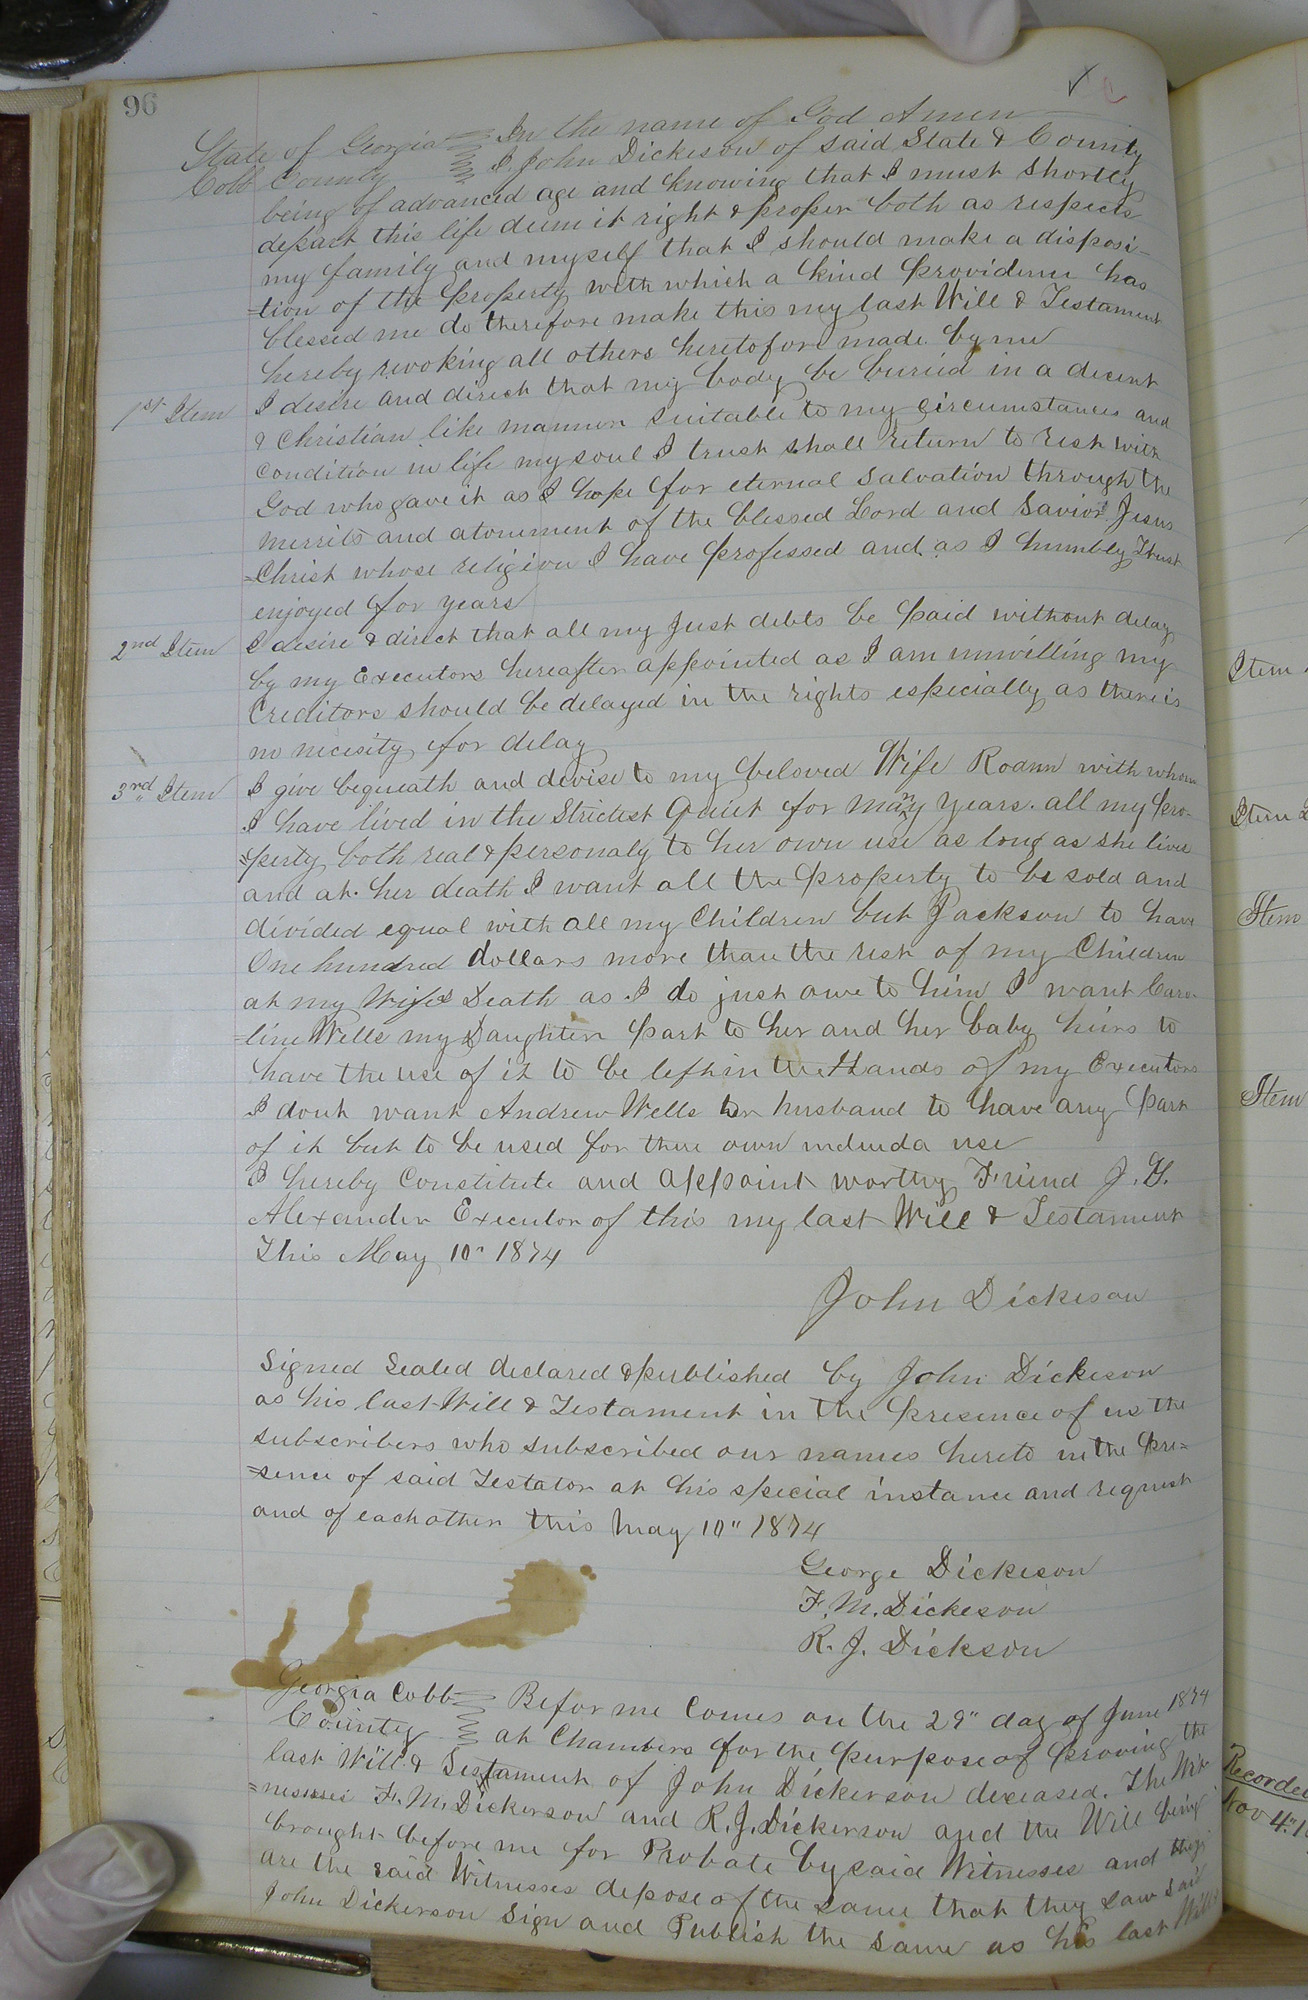 96
State of Georgia In the name of God Amen
Cobb County I, John Dickeson of said State & County
being of advanced age and knowing that I must shortly
depart this life deem it right & proper both as respects
my family and myself that I should make a disposi-
=tion of the property with which a kind providence has
blessed me do therefore make this my last Will & Testament
hereby revoking all others heretofore made by me
1st Item I desire and direct that my body be buried in a decent
& Christian like manner suitable to my circumstances and
condition in life my soul I trust shall return to rest with
God who gave it as I hope for eternal salvation through the
merrits and atonement of the blessed Lord and Savior Jesus
=Christ whose religion I have professed and as I humbly Trust
enjoyed for years
2nd Item I desire & direct that all my just debts be paid without delay
by my Executors hereafter appointed as I am unwilling my
Creditors should be delayed in the rights especially as there is
no nicesity for delay
3rd Item I give bequeath and devise to my beloved Wife Roann with whom
I have lived in the Strictest Quiet for many years. all my pro-
=perty both real & personaly to her own use as long as she lives
and at her death I want all the property to be sold and
divided equal with all my Children but Jackson to have
One hundred dollars more than the rest of my Children
at my Wifes Death as I do just owe to him I want Caro-
=line Wells my Daughter part to her and her baby heirs to
have the use of it to be left in the Hands of my Executors
I dont want Andrew Wells her husband to have any part
of it but to be used for there own use
I hereby Constitute and appoint worthy Friend J. G.
Alexander Executor of this my last Will & Testament
This May 10" 1874
John Dickeson
Signed Sealed declared & published by John Dickeson
as his last Will & Testament in the presence of us the
subscribers who subscribed our names hereto in the pre=
=sence of said Testator at his special instance and request
and of each other this May 10" 1874
George Dickeson
F. M. Dickeson
R. J. Dickson
Georgia Cobb Befor me Comes on the 29" day of June 1874
County at Chambers for the purpose of proving the
last Will & Testament of John Dickerson deceased. The Wit-
=nesses F. M. Dickerson and R. J. Dickerson and the Will being
brought before me for Probate by said Witnesses and they
are the said Witnesses depose of the same that they saw said
John Dickerson Sign and Publish the same as his last Will
Item
Item
Item
Item
Recorded
Nov 4"